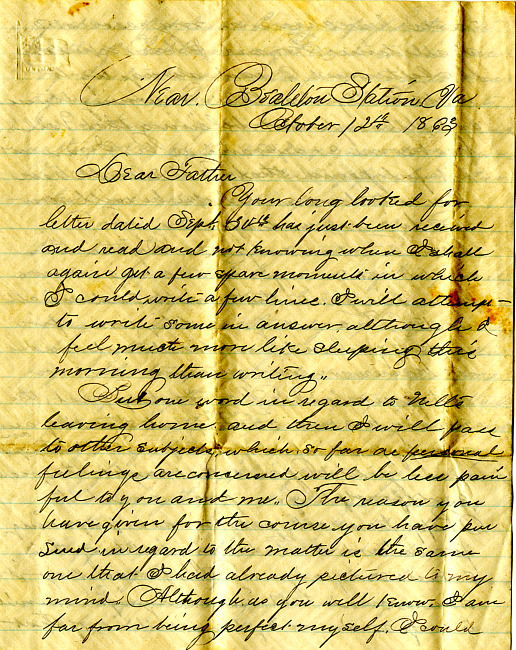 Near. Bealeton Station Va
October 12th 1863
Dear Father
Your long looked for
letter dated Sept. 30th has just been received
and read and not knowing when I shall
again get a few spare moments in which
I could write a few lines. I will attempt
to write some in answer although I
feel much more like sleeping this
morning than writing.,
Just one word in regard to Nell's
leaving home. and then I will pass
to other subjects which so far as personal
feelings are conserned will be less pain
ful to you and me., The reason you
have given for the course you have pur
sued in regard to the matter is the same
one that I had already pictured to my
mind. Although, as you will know. I am
far from being perfect myself. I could